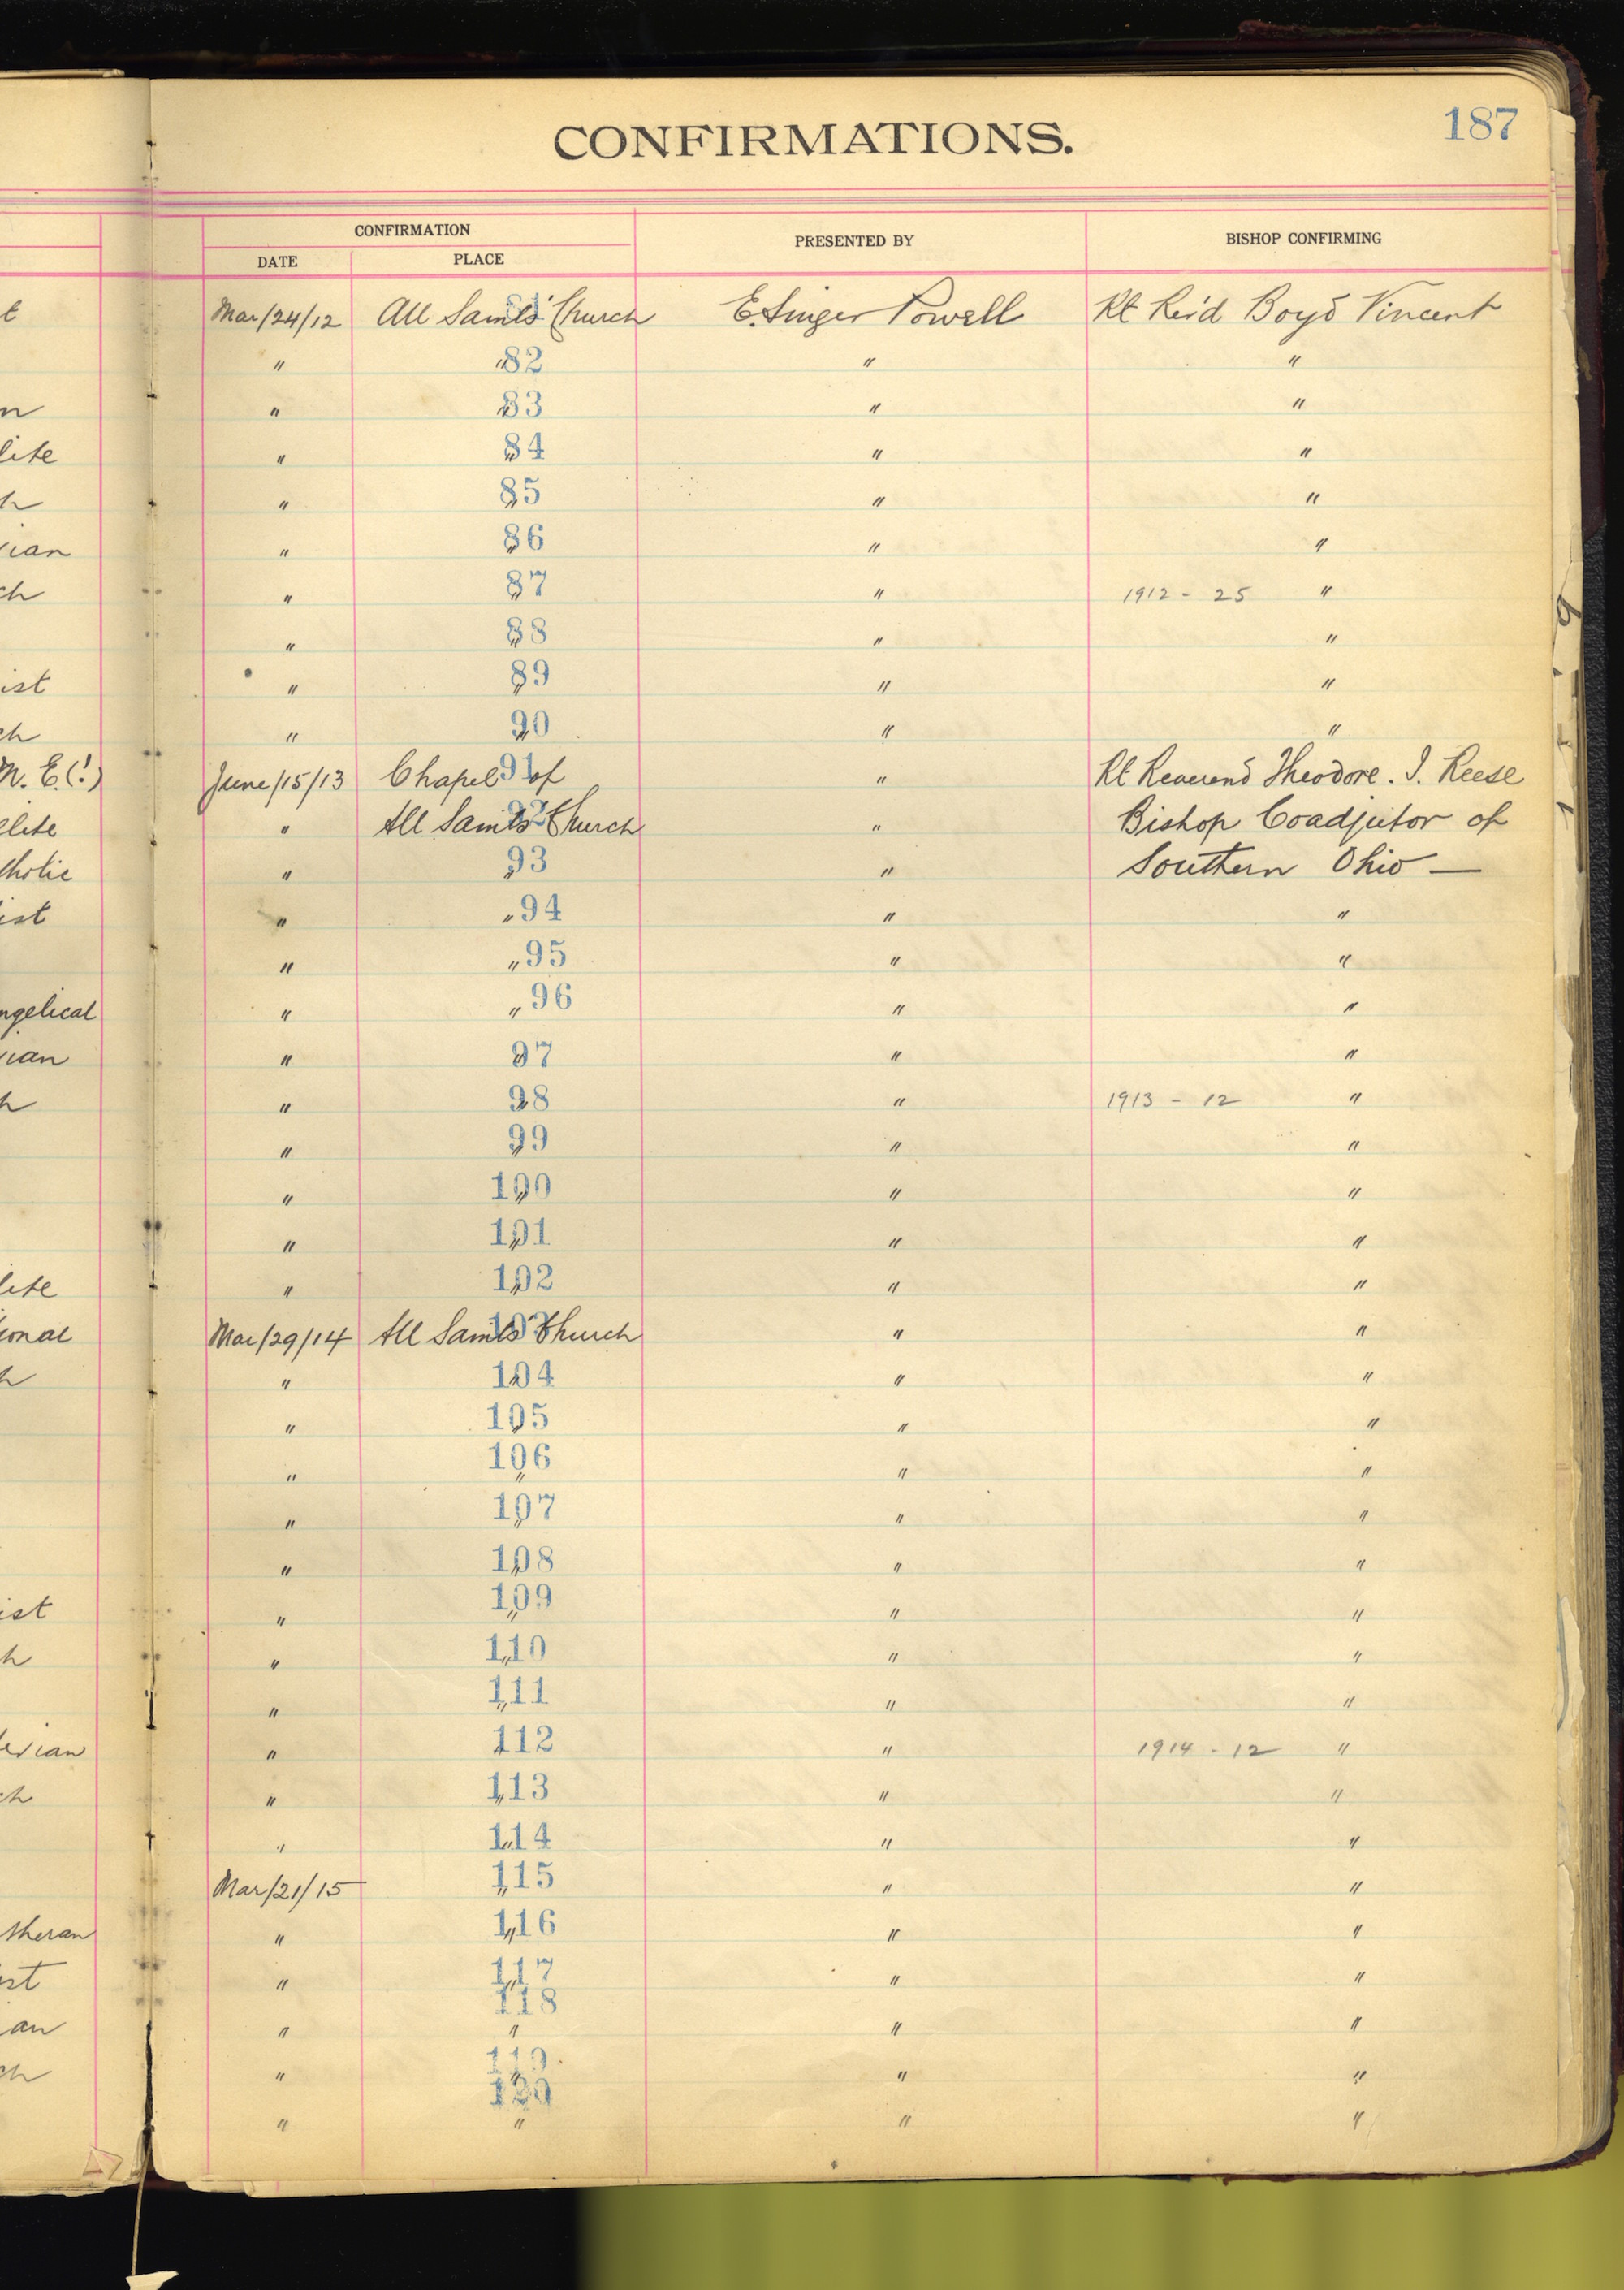 187
CONFIRMATIONS.
CONFIRMATION PRESENTED BY BISHOP CONFIRMING
DATE PLACE
t Mar/24/12 All Saints' Church E. Singer Powell Rt Rev'd Boyd Vincent
" 82 " " "
n " 83 " " "
lite " 84 " " "
h " 85 " " "
ian " 86 " " "
ch " 87 " " 1912 - 25 "
" 88 " " "
ist " 89 " " "
ch " 90 " " "
M. E. (!) June/15/13 Chapel 91 of " Rt Reverend Theodore. I. Reese
elite " All Saints' 92 Church " Bishop Coadjutor of
tholic " 93 " " Southern Ohio —
ist " " 94 " "
" " 95 " "
ngelical " " 96 " "
ian " 97 " " "
h " 98 " " 1913 - 12 "
" 99 " " "
" 100 " " "
" 101 " " "
lite " 102 " " "
ional Mar/29/14 All Saints' 103 Church " "
h " 104 " " "
" 105 " " "
" 106 " " "
" 107 " " "
" 108 " " "
ist " 109 " " "
h " 110 " " "
" 111 " " "
erian " 112 " " 1914 - 12 "
ch " 113 " " "
" 114 " " "
Mar/21/15 115 " " "
theran " 116 " " "
ist " 117 " " "
118
an " " " "
119
ch " " " "
120
" " " "